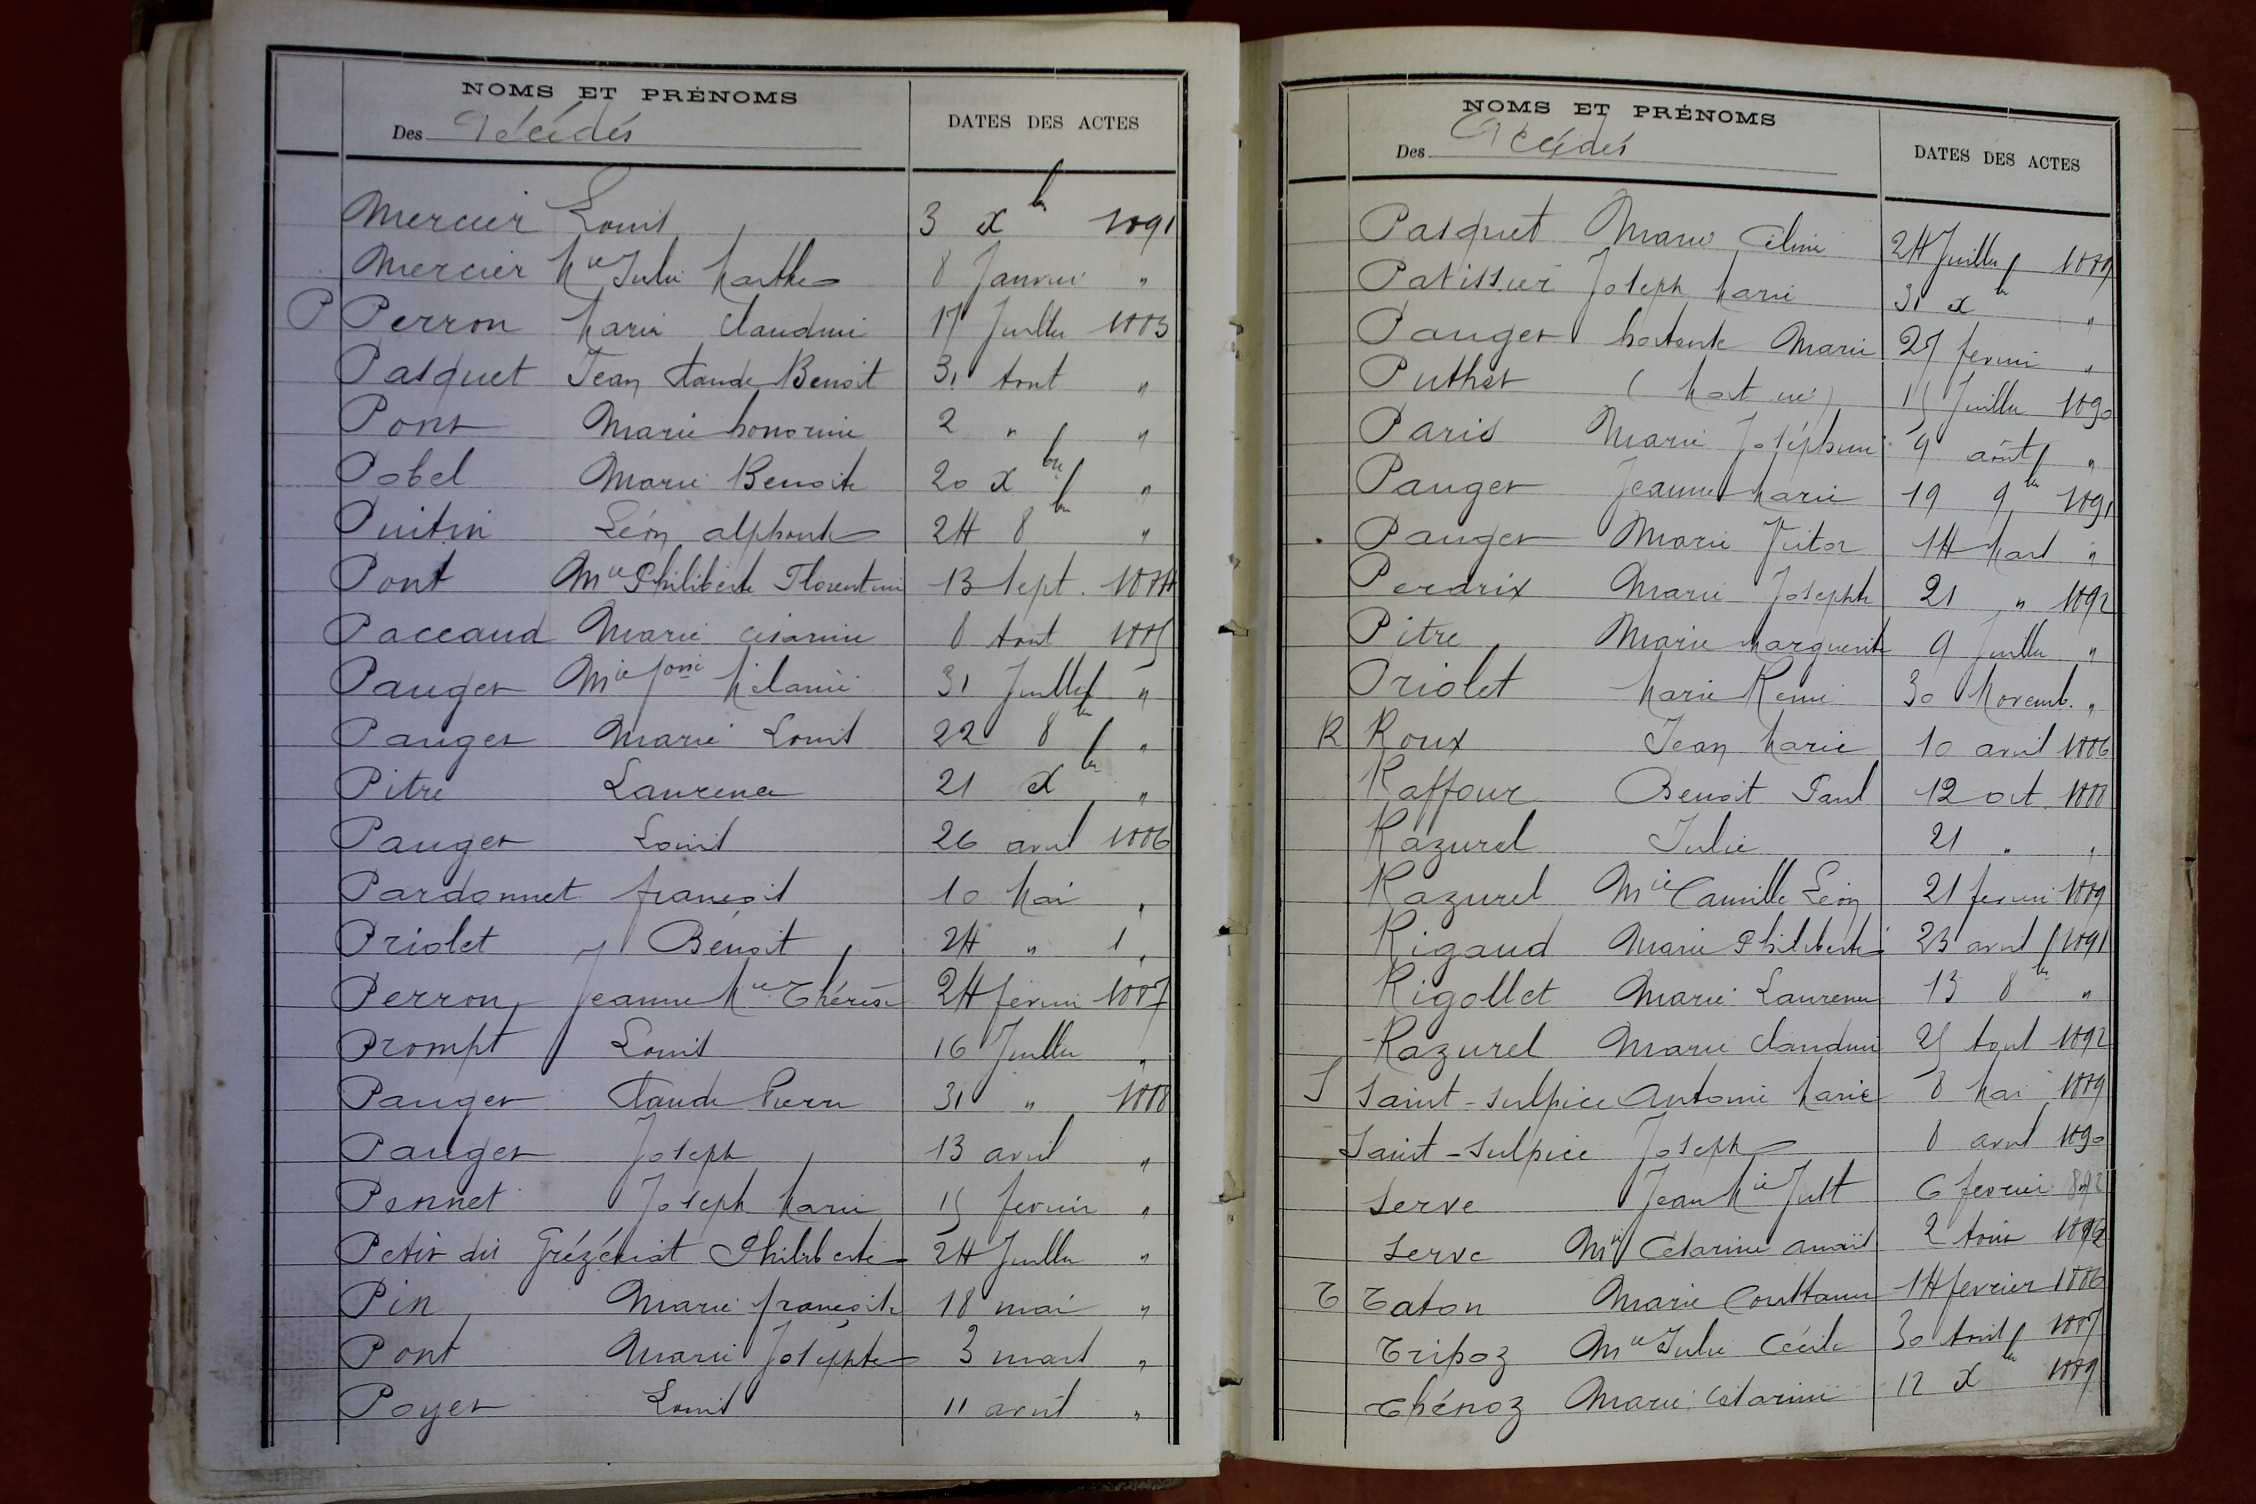 NOMS ET PRÉNOMS
Des Décédés
DATES DES ACTES
Mercier Louis 3 Xbre 1891
Mercier Mie Julie Marthe 8 Janvier "
P Perron Marie Claudine 17 Juillet 1883
Pasquet Jean Claude Benoit 31 Aout "
Pont Marie honorine 2 " "
Pobel Marie Benoite 20 Xbre "
Puitin Léon alphonse 24 8bre "
Pont Mie Philiberte Florentine 13 Sept. 1884
Paccaud Marie Césarine 8 Aout 1885
Pauget Mie Jone Mélanie 31 Juillet "
Pauget Marie Louis 22 8bre "
Pitre Laurence 21 Xbre "
Pauget Louis 26 avril 1886
Pardonnet françois 10 Mai "
Priolet Benoit 24 " "
Perron Jeanne Mie Thérèse 24 février 1887
Prompt Louis 16 Juillet "
Pauget Claude Pierre 31 " 1888
Pauget Joseph 13 avril "
Pennet Joseph Marie 15 fevrier "
Petit dit Grézériat Philiberte 24 Juillet "
Pin Marie françoise 18 mai "
Pont Marie Josephte 3 mars "
Poyet Louis 11 avril "
NOMS ET PRÉNOMS
Des Décédés
DATES DES ACTES
Pasquet Marie Céline 24 Juillet 1889
Patissier Joseph Marie 31 Xbre "
Pauget hortense Marie 27 fevrier "
Puthet (Mort né) 15 Juillet 1890
Paris Marie Joséphine 9 août "
Pauget Jeanne Marie 19 9bre 1891
Pauget Marie Victor 14 Mars "
Perdrix Marie Josephte 21 " 1892
Pitre Marie Marguerite 9 Juillet "
Priolet Marie Remi 30 Novemb. "
R Roux Jean Marie 10 avril 1886
Raffour Benoit Paul 12 oct. 1888
Razurel Julie 21 " "
Razurel Mie Camille Léon 21 fevrier 1889
Rigaud Marie Philiberte 23 avril 1891
Rigollet Marie Laurence 13 8bre "
Razurel Marie Claudine 25 Aout 1892
S Saint-Sulpice Antoine Marie 8 Mai 1889
Saint-Sulpice Joseph 8 avril 1890
Serve Jean Mie Just 6 fevrier 892
Serve Mie Césarine anaïs 2 Aout 1892
T Taton Marie Constance 14 fevrier 1886
Tripoz Mie Julie Cécile 30 Avril 1887
Thénoz Marie Césarine 12 Xbre 1889